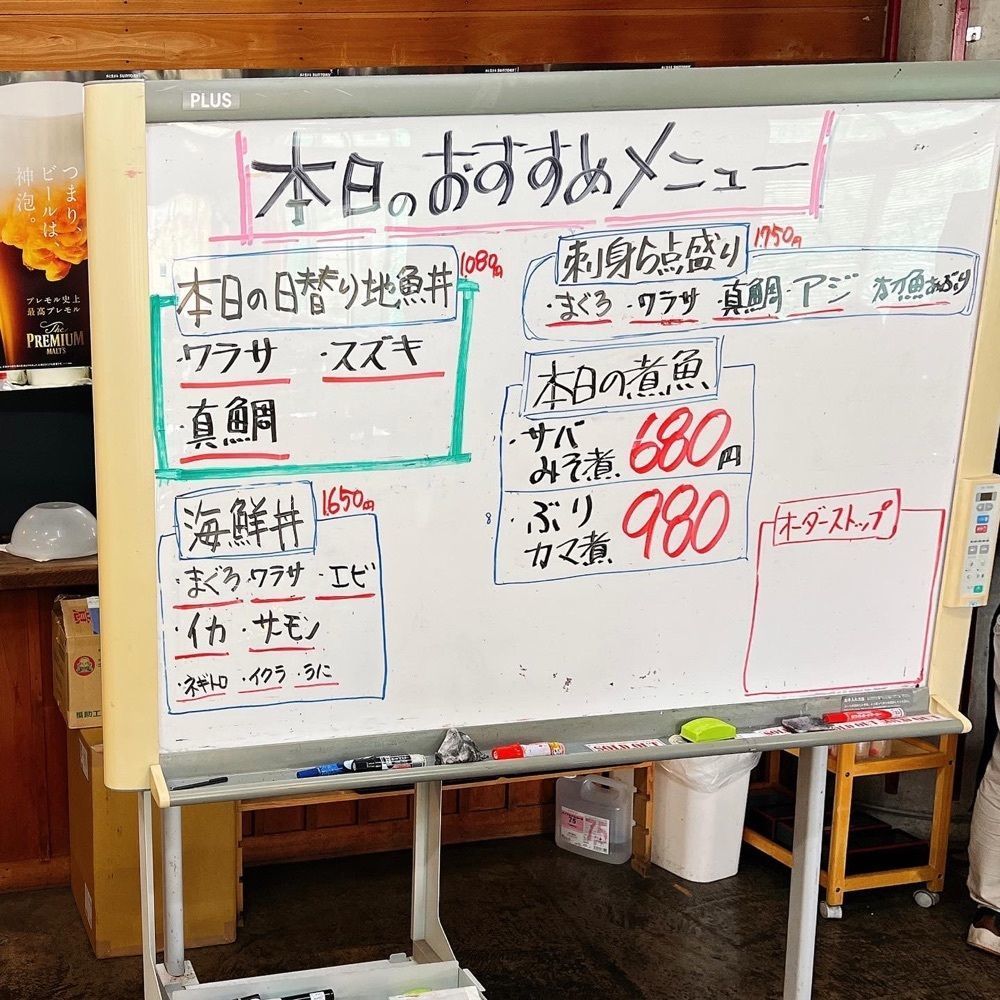 PLUS
本日のおすすめメニュー
本日の日替り地魚丼
1.080円
・ワラサ ・スズキ
・真鯛
海鮮丼
1.650円
・まぐろ・ワラサ ・エビ
・イカ ・サーモン
・ネギトロ ・イクラ ・うに
刺身5点盛り
1.750円
・まぐろ ・ワラサ 真鯛・アジ
本日の煮魚
・サバ
みそ煮 680円
・ぶり
カマ煮 980
オーダーストップ
つまり、
ビールは、
神泡。
プレモル史上
最高プレモル
The
PREMIUM
MALTS
SOLD OUT